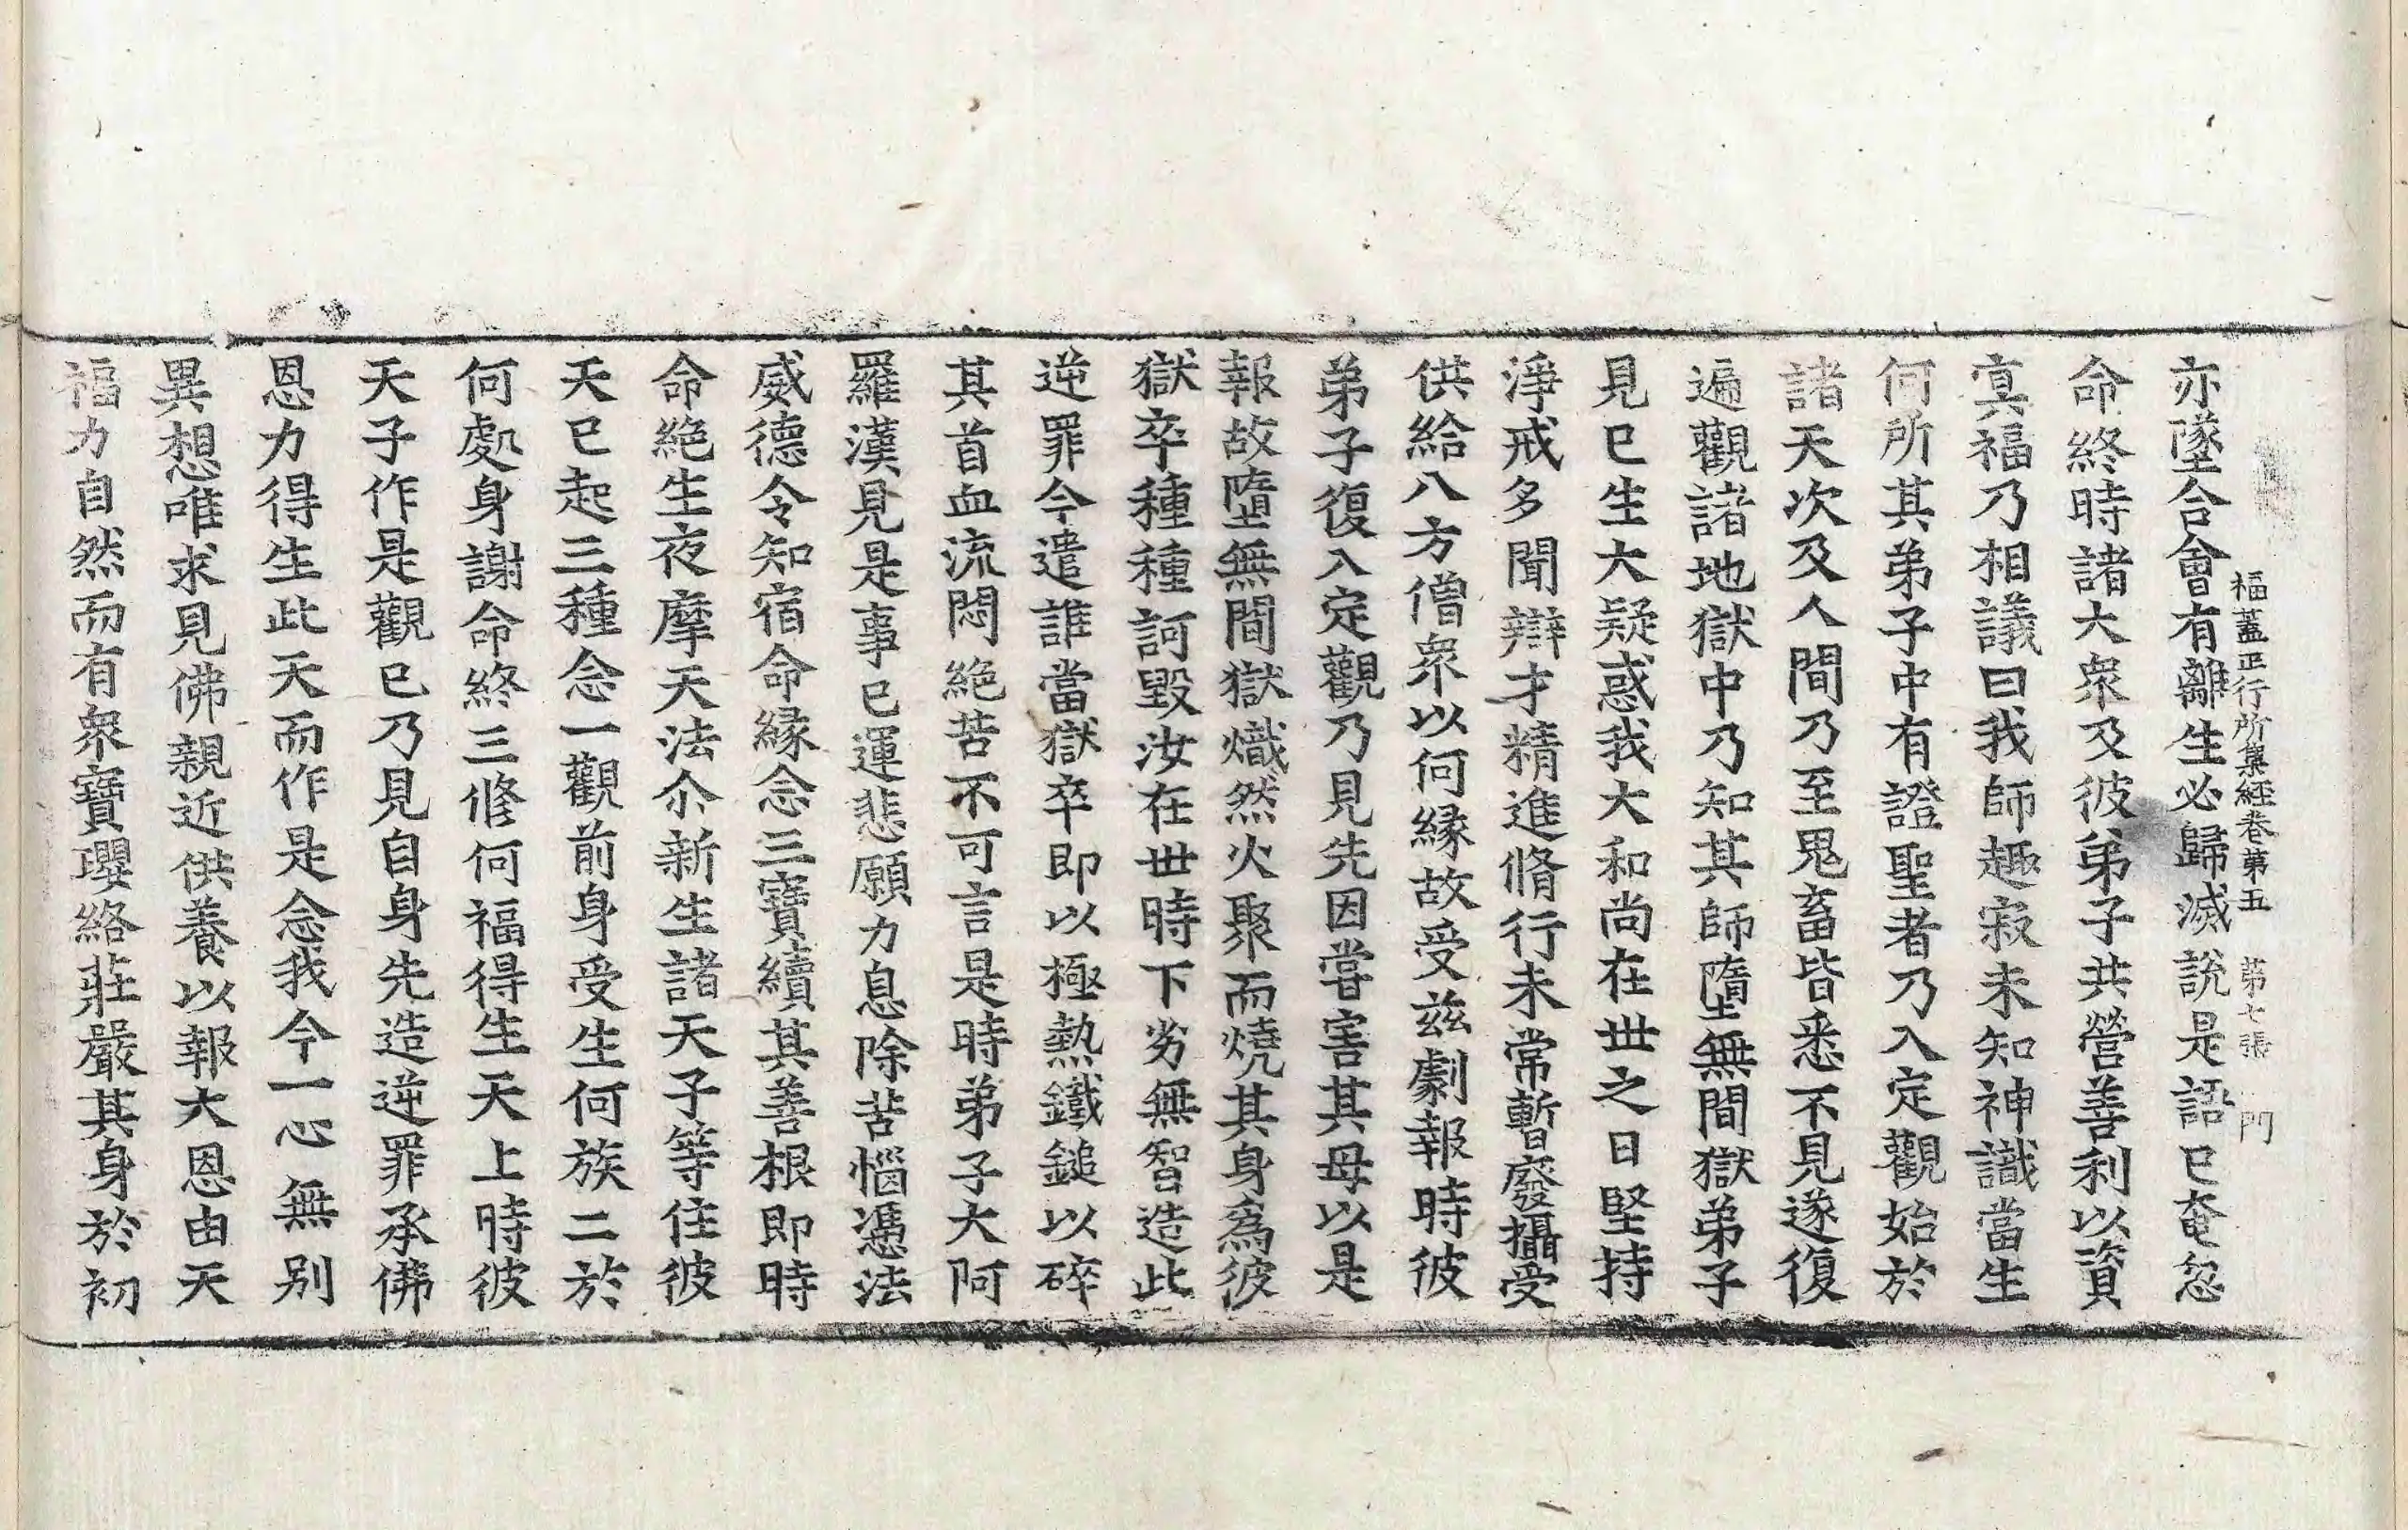 福蓋正行所集經卷第五　第七張　門
亦墜合會有離生必歸滅說是語已奄忽
命終時諸大衆及彼弟子共營善利以資
寘福乃相議曰我師趣寂未知神識當生
何所其弟子中有證聖者乃入定觀始於
諸天次及人間乃至鬼畜皆悉不見遂復
遍觀諸地獄中乃知其師墮無間獄弟子
見已生大疑惑我大和尚在世之日堅持
淨戒多聞辯才精進脩行未常暫廢攝受
供給八方僧衆以何緣故受兹劇報時彼
弟子復入定觀乃見先因嘗害其母以是
報故墮無間獄熾然火聚而燒其身爲彼
獄卒種種訶毀汝在世時下劣無智造此
逆罪今遣誰當獄卒即以極熱鐵鎚以碎
其首血流悶絶苦不可言是時弟子大阿
羅漢見是事已運悲願力息除苦惱憑法
威德令知宿命緣念三寶續其善根即時
命絶生夜摩天法尒新生諸天子等住彼
天已起三種念一觀前身受生何族二於
何處身謝命終三修何福得生天上時彼
天子作是觀已乃見自身先造逆罪承佛
恩力得生此天而作是念我今一心無別
異想唯求見佛親近供養以報大恩由天
福力自然而有衆寶瓔絡莊嚴其身於初